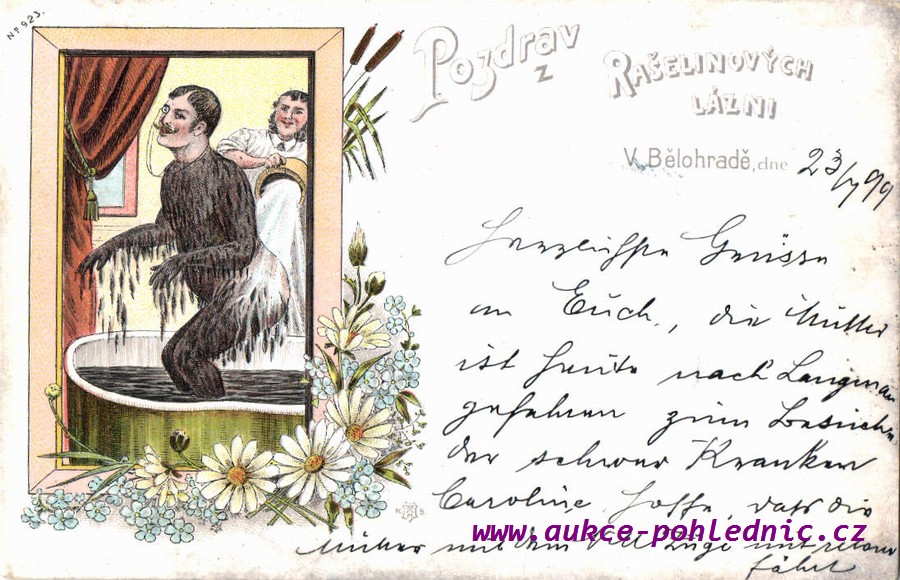 No 923.
Pozdrav
z
Rašelinových
Lázni
V Bělohradě, dne 23/7 99
Herzlichste Grüsse
an Euch, die Mutter
ist heute nach
gefahren zum Besuche
der schwer Kranken
Caroline, hoffe, dass die
Mutter mit dem Zuge mit retour
fährt
K S.
www.aukce-pohlednic.cz